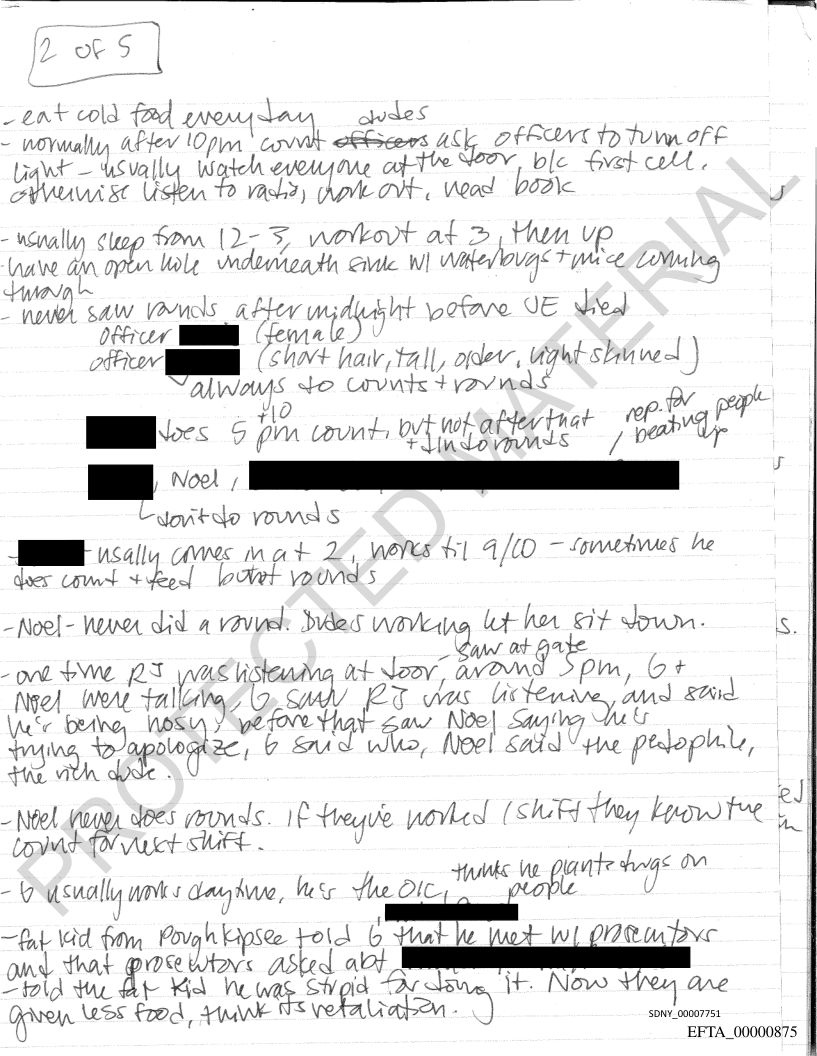 2 OF 5
- eat cold food everyday dudes
- normally after 10pm count officers ask officers to turn off
light - usually watch everyone at the door, b/c first cell.
otherwise listen to radio, work out, read book
- usually sleep from 12-3, workout at 3, then up
- have an open hole underneath sink w/ waterbugs + mice coming
through
- never saw rounds after midnight before JE died
officer (female)
officer (short hair, tall, older, light skinned)
always do counts + rounds
+10
does 5 pm count, but not after that
+ didn't do rounds
rep. for
beating people
up
, Noel,
don't do rounds
- usually comes in at 2, works til 9/10 - sometimes he
does count + feed but not rounds
- Noel - never did a round. Dudes working let her sit down.
saw at gate
- one time RJ was listening at door, around 5pm, G +
Noel were talking, G saw RJ was listening, and said
he's being nosy, before that saw Noel saying he's
trying to apologize, G said who, Noel said the pedophile,
the rich dude.
- Noel never does rounds. If they've worked 1 shift they know the
count for next shift.
thinks he plants drugs on
people
- G usually works daytime, he's the OIC,
- fat kid from Poughkipsee told G that he met w/ prosecutors
and that prosecutors asked abt
- told the fat kid he was stupid for doing it. Now they are
given less food, think its retaliation.
PROTECTED MATERIAL
SDNY_00007751
EFTA_00000875